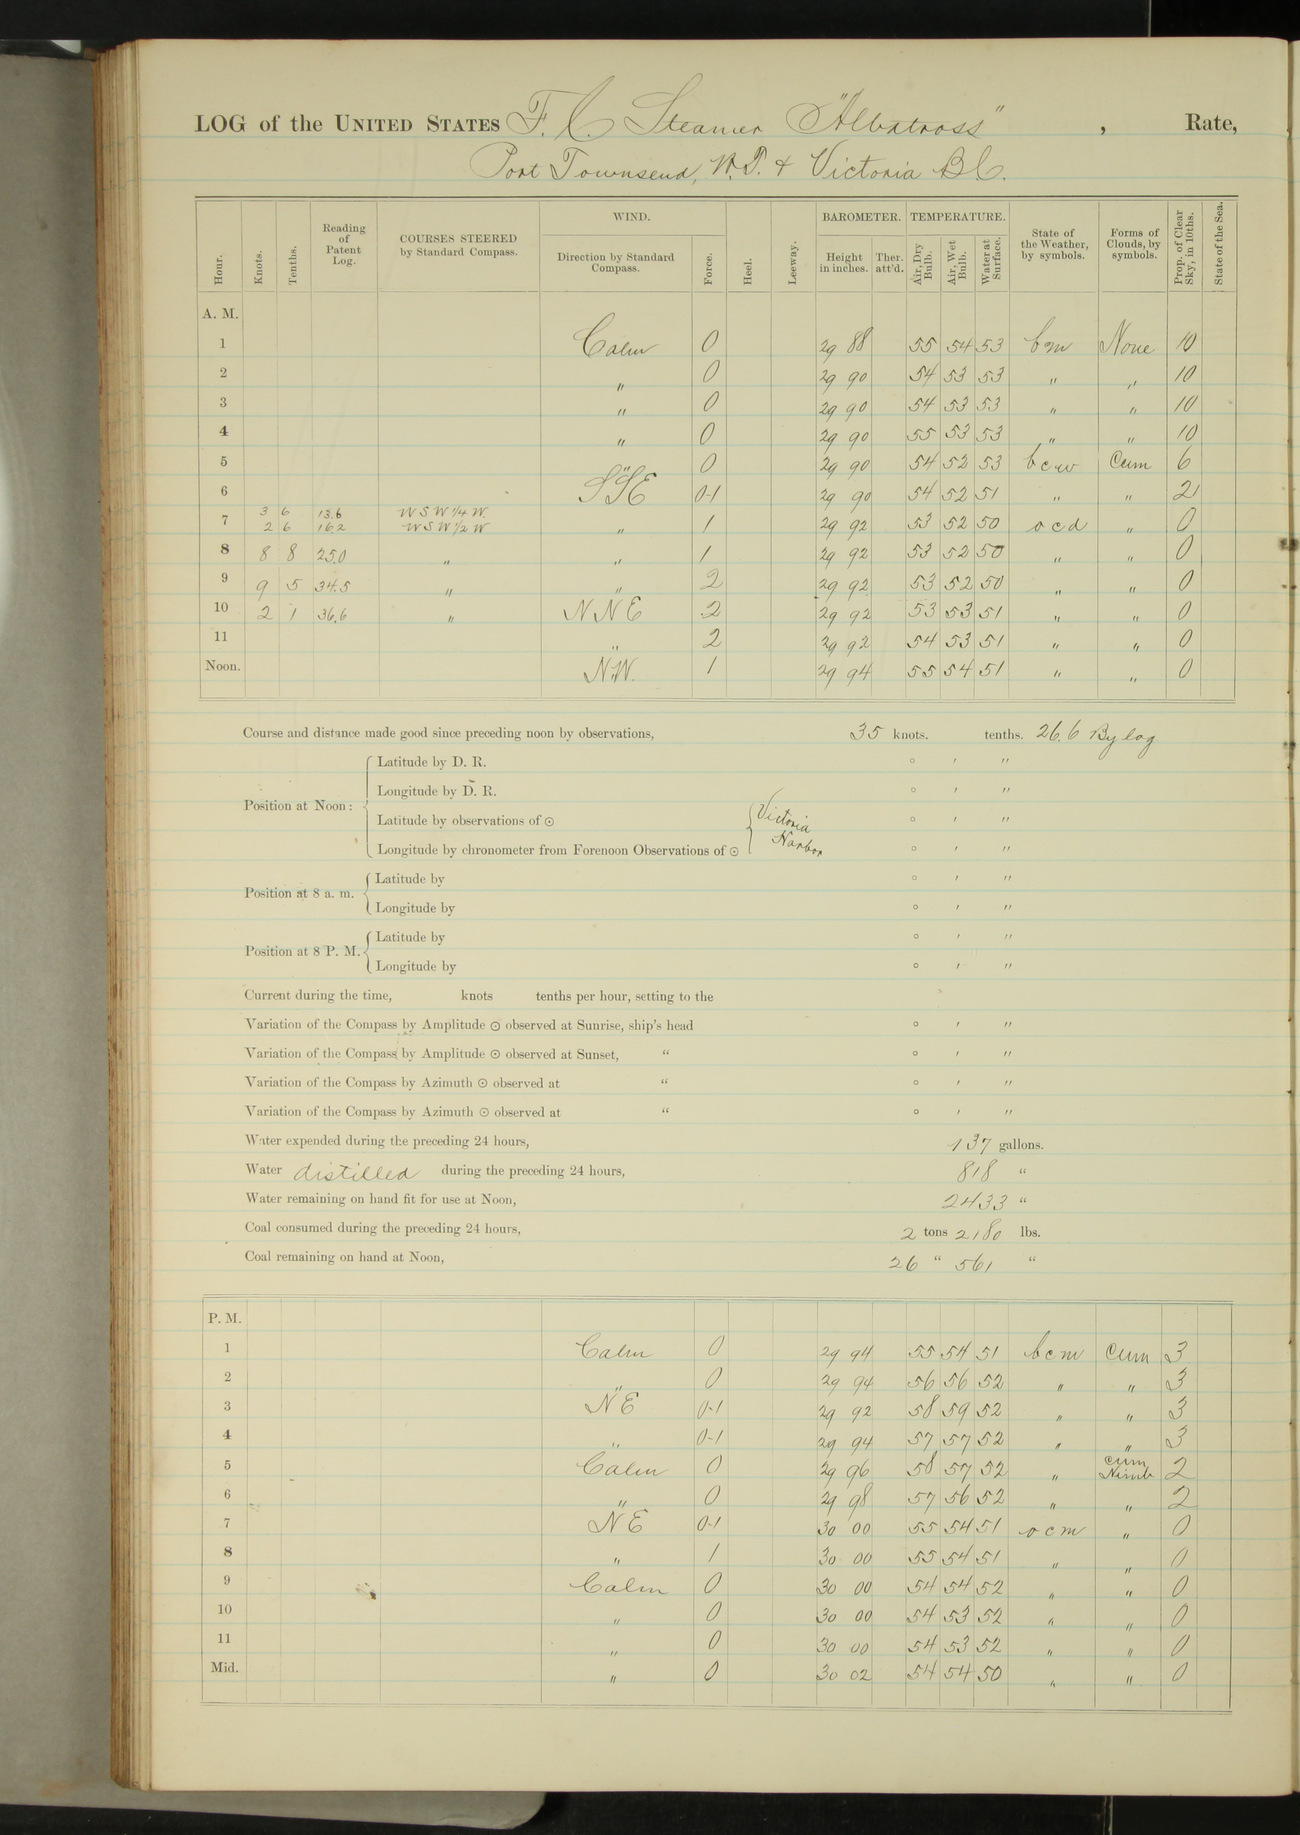 LOG of the UNITED STATES F. C. Steamer "Albatross", Rate,
Port Townsend, W.T. & Victoria B.C.
Hour. Knots. Tenths. Reading of Patent Log. COURSES STEERED by Standard Compass. WIND. Direction by Standard Compass. Force. Heel. Leeway. BAROMETER. Height in inches. Ther. att'd. TEMPERATURE. Air, Dry Bulb. Air, Wet Bulb. Water at Surface. State of the Weather, by symbols. Forms of Clouds, by symbols. Prop. of Clear Sky, in 10ths. State of the Sea.
A. M.
1 Calm 0 29 88 55 54 53 b m None 10
2 " 0 29 90 54 53 53 " " 10
3 " 0 29 90 54 53 53 " " 10
4 " 0 29 90 55 53 53 " " 10
5 " 0 29 90 54 52 53 b c w Cum 6
6 SSE 0-1 29 90 54 52 51 " " 2
3 6 13.6 WSW 1/4 W.
7 2 6 16.2 WSW 1/2 W " 1 29 92 53 52 50 o c d " 0
8 8 8 25.0 " " 1 29 92 53 52 50 " " 0
9 9 5 34.5 " " 2 29 92 53 52 50 " " 0
10 2 1 36.6 " NNE 2 29 92 53 53 51 " " 0
11 " 2 29 92 54 53 51 " " 0
Noon. N.W. 1 29 94 55 54 51 " " 0
Course and distance made good since preceding noon by observations, 35 knots. tenths. 26.6 By log
Latitude by D. R. ° ′ ″
Longitude by D. R. ° ′ ″
Position at Noon:
Latitude by observations of ⊙ Victoria ° ′ ″
Longitude by chronometer from Forenoon Observations of ⊙ Harbor ° ′ ″
Latitude by ° ′ ″
Position at 8 a. m.
Longitude by ° ′ ″
Latitude by ° ′ ″
Position at 8 P. M.
Longitude by ° ′ ″
Current during the time, knots tenths per hour, setting to the
Variation of the Compass by Amplitude ⊙ observed at Sunrise, ship's head ° ′ ″
Variation of the Compass by Amplitude ⊙ observed at Sunset, " ° ′ ″
Variation of the Compass by Azimuth ⊙ observed at " ° ′ ″
Variation of the Compass by Azimuth ⊙ observed at " ° ′ ″
Water expended during the preceding 24 hours, 137 gallons.
Water distilled during the preceding 24 hours, 818 "
Water remaining on hand fit for use at Noon, 2433 "
Coal consumed during the preceding 24 hours, 2 tons 2180 lbs.
Coal remaining on hand at Noon, 26 " 561 "
P. M.
1 Calm 0 29 94 55 54 51 b c m Cum 3
2 " 0 29 94 56 56 52 " " 3
3 NE 0-1 29 92 58 59 52 " " 3
4 " 0-1 29 94 57 57 52 " " 3
5 Calm 0 29 96 58 57 52 " Cum Nimb 2
6 " 0 29 98 57 56 52 " " 2
7 NE 0-1 30 00 55 54 51 o c m " 0
8 " 1 30 00 55 54 51 " " 0
9 Calm 0 30 00 54 54 52 " " 0
10 " 0 30 00 54 53 52 " " 0
11 " 0 30 00 54 53 52 " " 0
Mid. " 0 30 02 54 54 50 " " 0